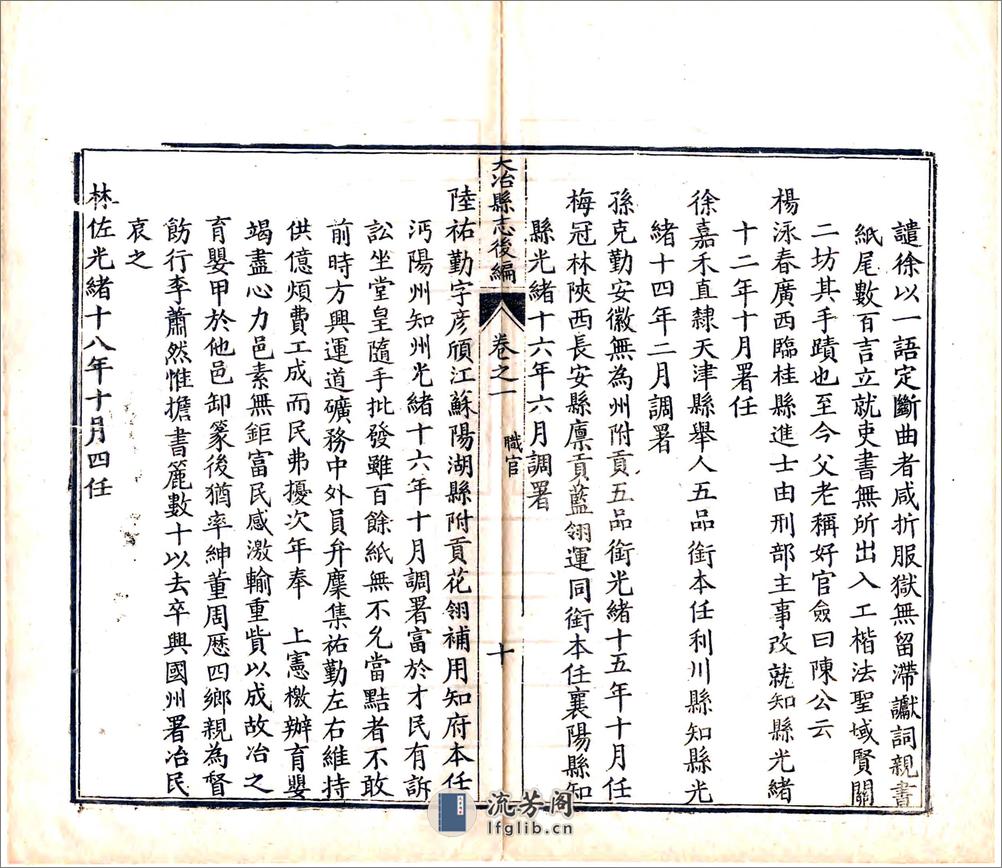 讉徐以一語定斷曲者咸折服獄無留滯讞詞親書
紙尾數百言立就吏書無所出入工楷法聖域賢關
二坊其手蹟也至今父老稱好官僉曰陳公云
楊泳春廣西臨桂縣進士由刑部主事改就知縣光緒
十二年十月署任
徐嘉禾直隸天津縣舉人五品銜本任利川縣知縣光
緒十四年二月調署
孫克勤安徽無為州附貢五品銜光緒十五年十月任
梅冠林陝西長安縣廪貢藍翎運同銜本任襄陽縣知
縣光緒十六年六月調署
大冶縣志後編
卷之一
職官
十
陸祐勤字彦頎江蘇陽湖縣附貢花翎補用知府本任
沔陽州知州光緒十六年十月調署富於才民有訴
訟坐堂皇隨手批發雖百餘紙無不允當黠者不敢
前時方興運道礦務中外員弁麇集祐勤左右維持
供億煩費工成而民弗擾次年奉 上憲檄辦育嬰
竭盡心力邑素無鉅富民感激輸重貲以成故冶之
育嬰甲於他邑卸篆後猶率紳董周歷四鄉親為督
飭行李蕭然惟擔書簏數十以去卒興國州署冶民
哀之
林佐光緒十八年十月四任
流芳閣
lfglib.cn